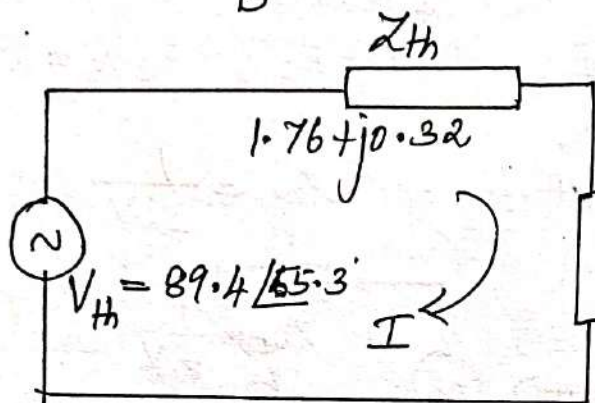 B
Z_th
1.76+j0.32
V_th = 89.4∠55.3°
I